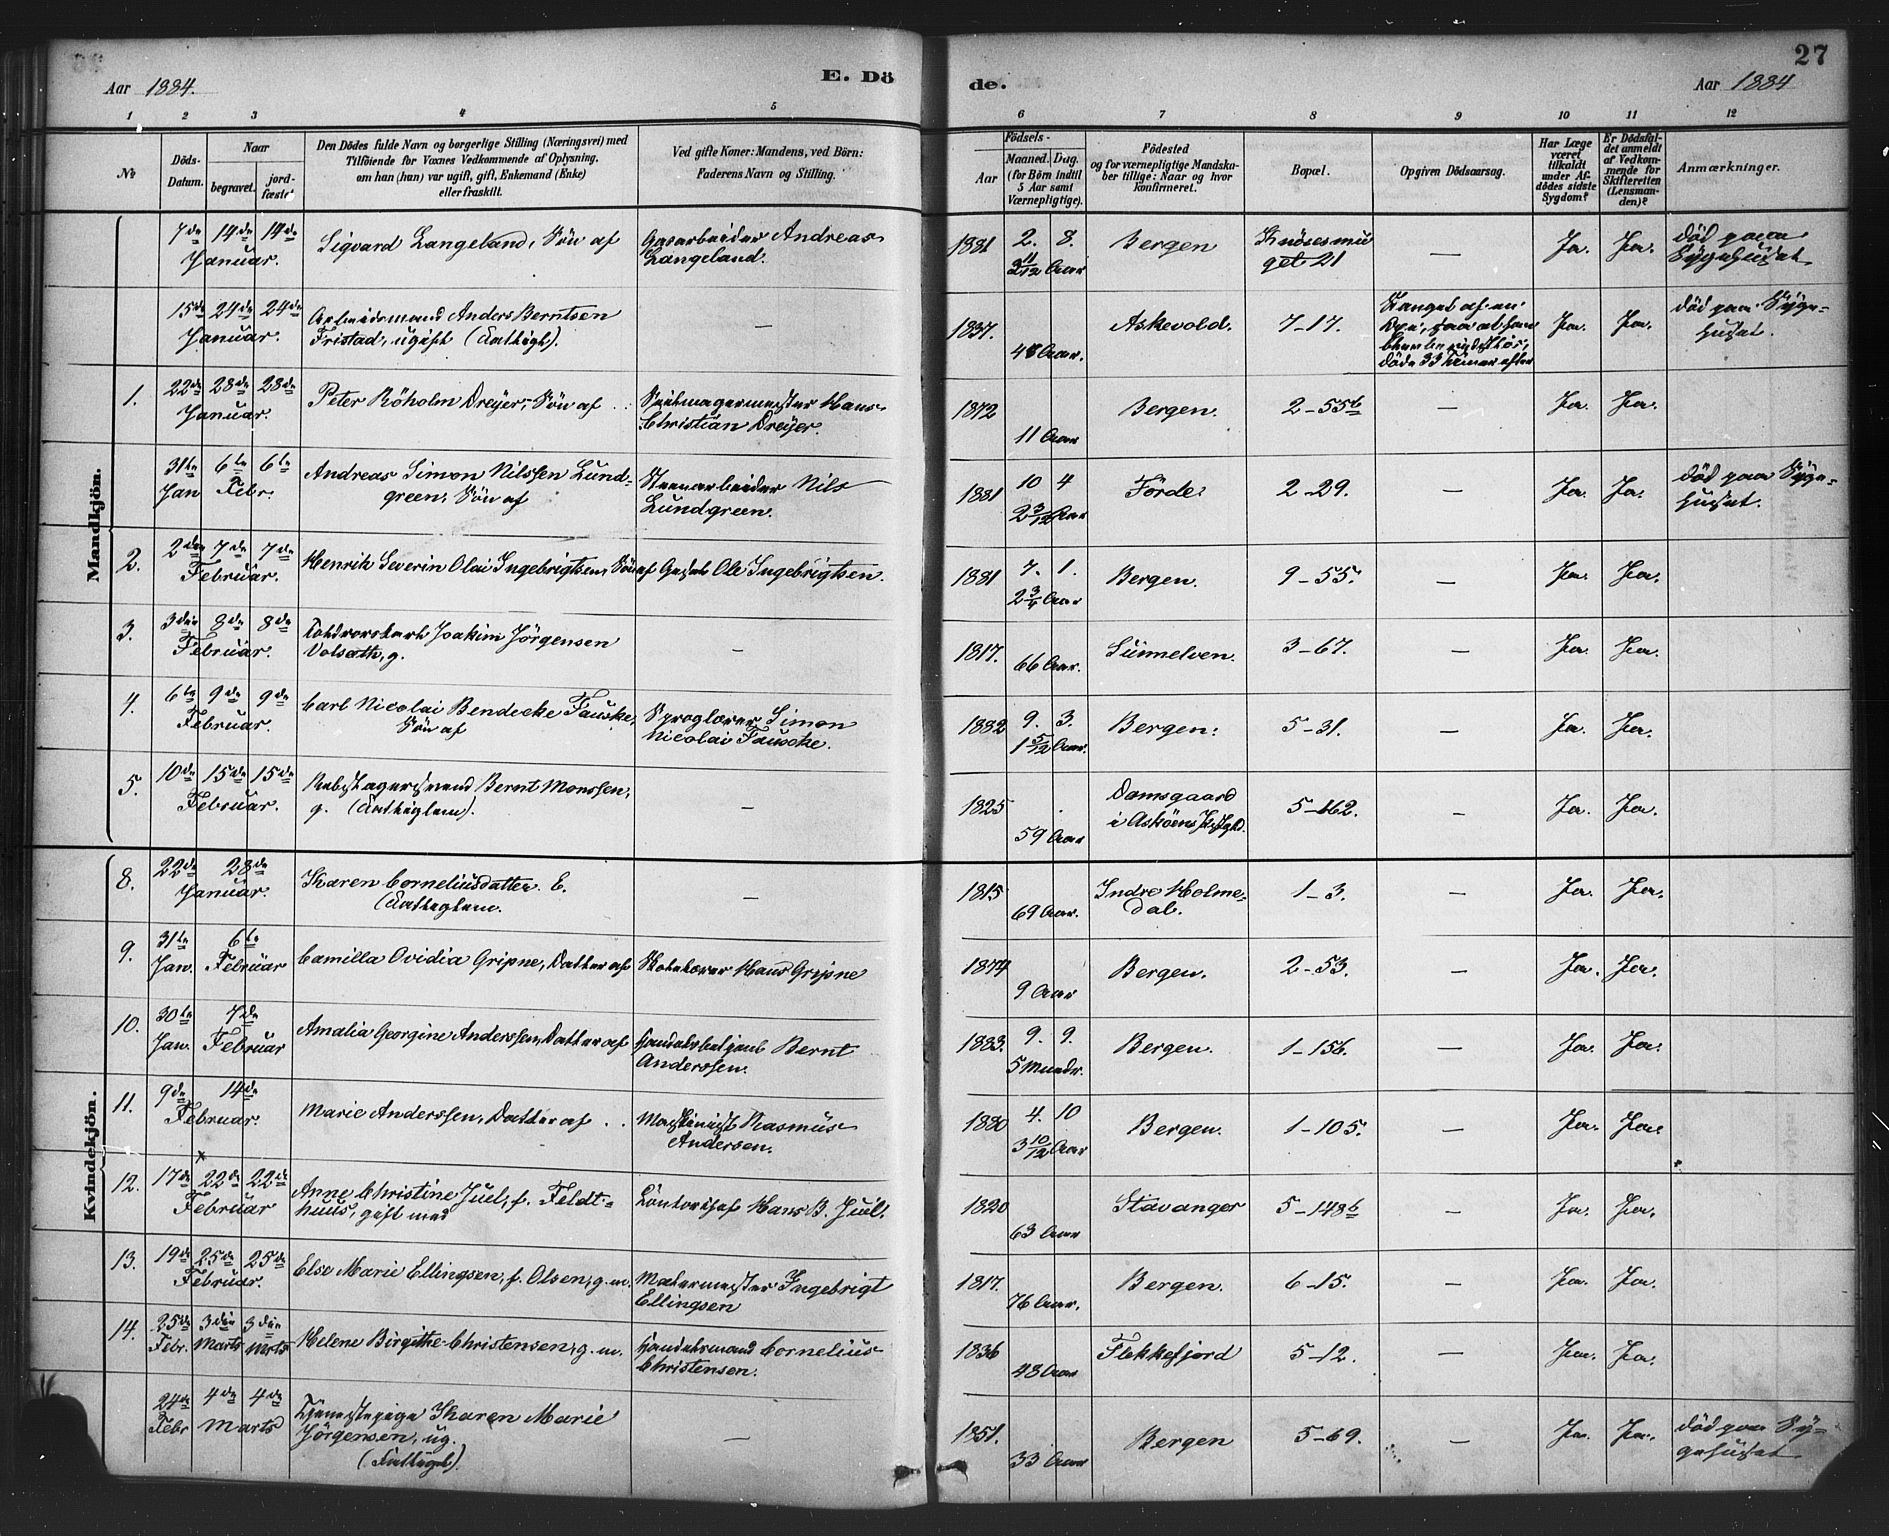 27
Aar 1884.
E. Dö
de.
Aar 1884
1 2 3 4 5 6 7 8 9 10 11 12
No
Döds-
Datum.
Naar
begravet.
jord-
fæstet
Den Dödes fulde Navn og borgerlige Stilling (Næringsvei) med
Tilföiende for Voxnes Vedkommende af Oplysning,
om han (hun) var ugift, gift, Enkemand (Enke)
eller fraskilt.
Ved gifte Koner: Mandens, ved Börn:
Faderens Navn og Stilling.
Födsels-
Aar
Maaned. Dag.
(for Börn indtil
5 Aar samt
Værnepligtige).
Födested
og for værnepligtige Mandska-
ber tillige: Naar og hvor
konfirmeret.
Bopæl.
Opgiven Dödsaarsag.
Har Læge
været
tilkaldt
under Af-
dödes sidste
Sygdom?
Er Dödsfal-
det anmeldt
af Vedkom-
mende for
Skifteretten
(Lensman-
den)?
Anmærkninger.
Mandkjön.
7de 14de 14de
Januar.
Sigvard Langeland, Sön af
Gasarbeider Andreas
Langeland.
1881 2. 8.
2 11/12 Aar
Bergen
Knösesmu
get 21
—
Ja. Ja.
död paa
Sygehuset
15de 24de 24de
Januar.
Arbeidsmand Anders Berntsen
Fristad, ugift (Fattigl).
—
1837.
Aar.
Askevold.
7-17.
Ja. Ja.
död paa Syge-
huset.
1. 22de 28de 28de
Januar.
Peter Röholm Dreyer, Sön af
Seilmagermester Hans
Christian Dreyer.
1872
11 Aar
Bergen.
2-55b
—
Ja. Ja.
31te 6te 6te
Jan Febr.
Andreas Simon Nilssen Lund-
green, Sön af
Stenarbeider Nils
Lundgreen.
1881 10 4
2 3/12 Aar
Förde.
2-29.
—
Ja. Ja.
död paa Syge-
huset.
2. 2den 7de 7de
Februar.
Henrik Severin Olai Ingebrigtsen, Sön af Ole Ingebrigtsen.
1881 7. 1.
2 3/4 Aar
Bergen.
9-55.
—
Ja. Ja.
3. 3die 8de 8de
Februar.
Joakim Jörgensen
g.
—
1817.
66 Aar.
Sunnelven.
3-67.
—
Ja. Ja.
4. 6te 9de 9de
Februar.
Carl Nicolai Bendecke Fauske,
Sön af
Sproglærer Simon
Nicolai Fauske.
1882 9. 3.
1 5/12 Aar.
Bergen.
5-31.
—
Ja. Ja.
5. 10de 15de 15de
Februar.
Rebslagersvend Bernt Monssen,
g. (Fattiglem).
—
1825
59 Aar
Damsgaard
i Askøens
5-162.
—
Ja. Ja.
Kvindekjön.
8. 22de 28de
Januar.
Karen Corneliusdatter. E.
(Fattiglem.
—
1815
69 Aar.
Indre Holme-
dal.
1-3.
—
Ja. Ja.
9. 31te 6te
Jan. Februar
Camilla Ovidia Gripne, Datter af
Hans Gripne
1874
9 Aar
Bergen.
2-53.
—
Ja. Ja.
10. 30te 7de
Jan. Februar
Amalia Georgine Anderssen, Datter af
Handelsbetjent Bernt
Anderssen.
1883. 9. 9.
5 Maaneder.
Bergen.
1-156.
—
Ja. Ja.
11. 9de 14de
Februar.
Marie Anderssen, Datter af
Maskinist Rasmus
Andersen.
1880 4. 10
3 10/12 Aar
Bergen.
1-105.
—
Ja. Ja.
x
12. 17de 22de 22de
Februar
Anne Christine Juel, f. Feldt-
huus, gift med
Contorist Hans B. Juel.
1820
63 Aar
Stavanger
5-148b
—
Ja. Ja.
13. 19de 25de 25de
Februar.
Else Marie Ellingsen, f. Olsen, g. m.
Malermester Ingebrigt
Ellingsen
1817.
76 Aar.
Bergen.
6-15.
—
Ja. Ja.
14. 25de 3die 3die
Febr. Marts Marts
Helene Birgithe Christensen, g. m.
Handelsmand Cornelius
Christensen.
1836
48 Aar
Flekkefjord
5-12.
—
Ja. Ja.
24de 4de 4de
Febr Marts
Tjenestepige Karen Marie
Jörgensen, ug.
(Fattigl).
—
1851.
33 Aar
Bergen
5-69.
—
Ja. Ja.
död paa Sy-
gehuset